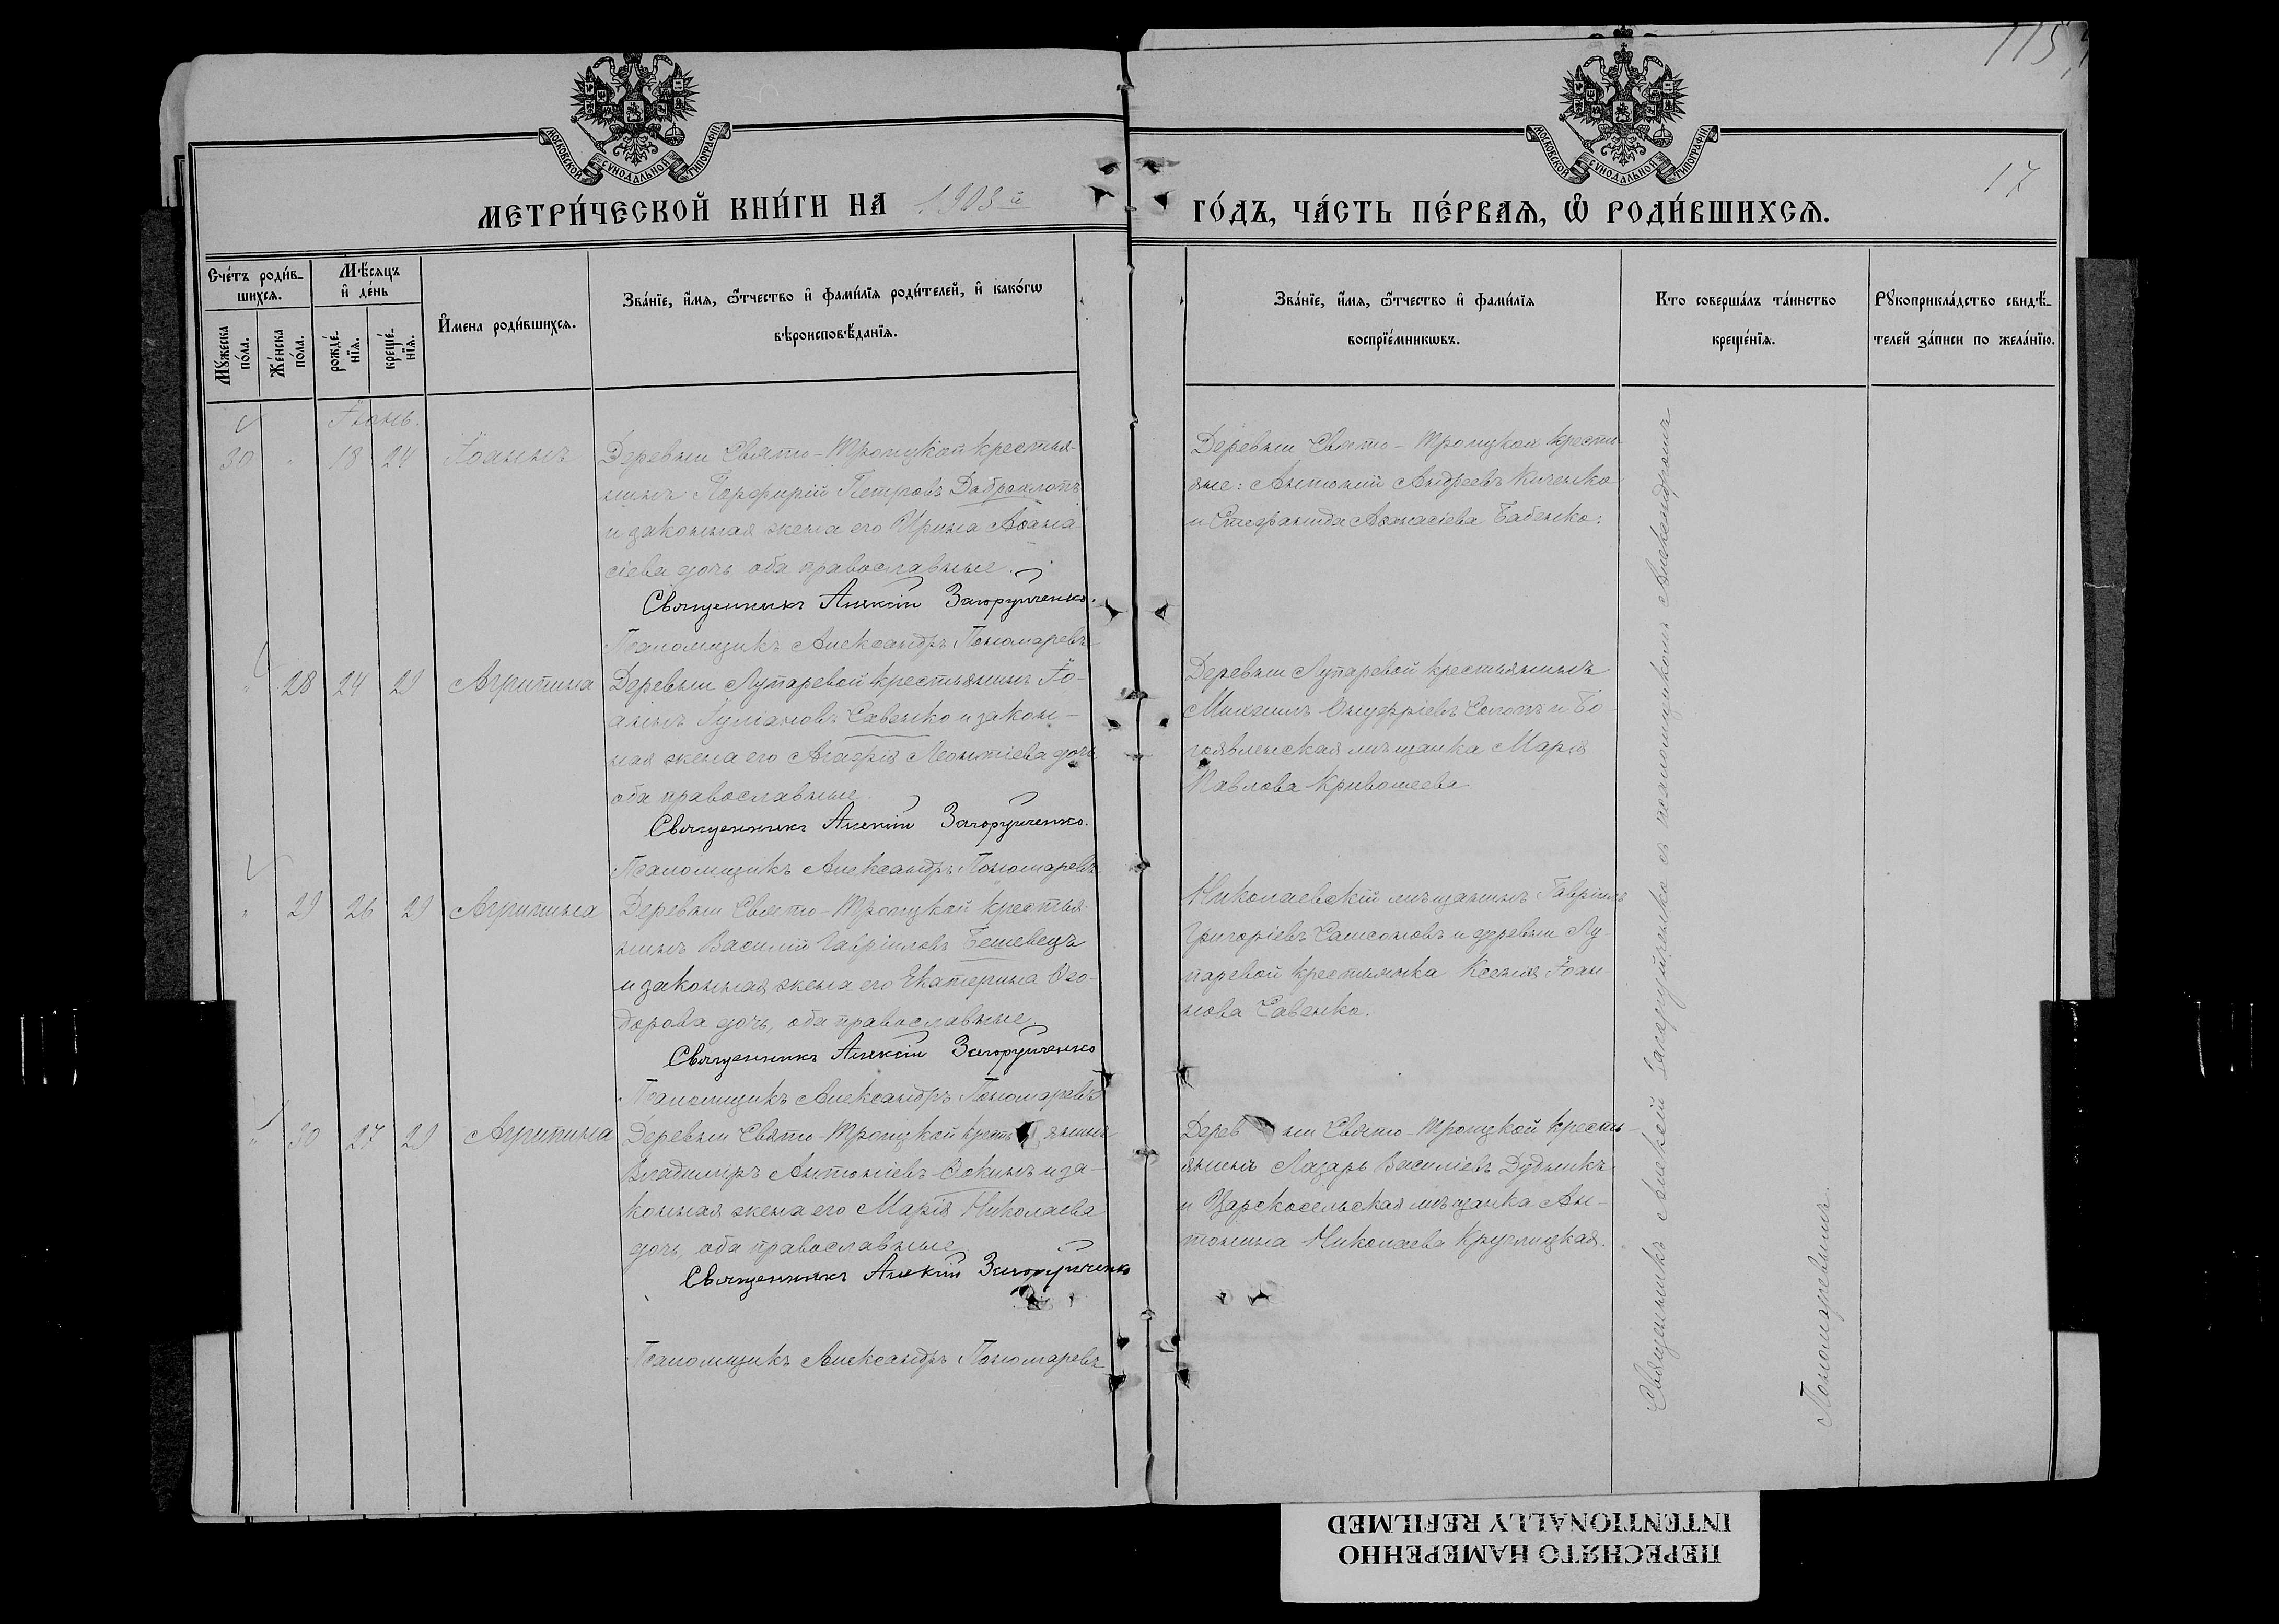 115
17
МОСКОВСКОЙ СѴНОДАЛЬНОЙ ТИПОГРАФІИ
МОСКОВСКОЙ СѴНОДАЛЬНОЙ ТИПОГРАФІИ
МЕТРИ́ЧЕСКОЙ КНИ́ГИ НА 1903 й
ГО́ДЪ, ЧА́СТЬ ПЕ́РВАЯ, Ѡ҆ РОДИ́ВШИХСЯ.
Сче́тъ роди́в-
шихся.
Мꙋ́жеска по́ла.
Же́нска по́ла.
Мѣ́сяцъ
и҆ де́нь
рожде́-
нїя.
креще́-
нїя.
И҆мена роди́вшихся.
Зва́нїе, и҆́мя, ѻ҆́тчество и҆ фами́лїя роди́телей, и҆ како́гѡ
вѣроисповѣ́данїя.
Зва́нїе, и҆́мя, ѻ҆́тчество и҆ фами́лїя
воспрїе́мникѡвъ.
Кто соверша́лъ та́инство
креще́нїя.
Рꙋкоприкла́дство свидѣ́-
телей за́писи по жела́нїю.
Іюнь.
30 " 18 24 Іоаннъ
Деревни Свято-Троицкой крестья-
нинъ Порфирій Петровъ Доброклотъ
и законная жена его Ирина Аѳана-
сіева дочь оба православные.
Священникъ Алексій Загоруйченко.
Псаломщикъ Александръ Пономаревъ
Деревни Свято-Троицкой крестья-
яне: Антоній Андреевъ Киченко
и Стефанида Аѳанасіева Бабенко.
" 28 24 29 Агрипина
Деревни Лупаревой крестьянинъ Іо-
аннъ Іуліановъ Савенко и закон-
ная жена его Агафія Леонтіева дочь
оба православные.
Священникъ Алексій Загоруйченко.
Псаломщикъ Александръ Пономаревъ
Деревни Лупаревой крестьянинъ
Михаилъ Онуфріевъ Солопъ и Бо-
гоявленская мѣщанка Марія
Павлова Кривошеева
" 29 26 29 Агрипина
Деревни Свято-Троицкой крестья-
нинъ Василій Гавріиловъ Бешевецъ
и законная жена его Екатерина Ѳео-
дорова дочь, оба православные.
Священникъ Алексій Загоруйченко
Псаломщикъ Александръ Пономаревъ
Николаевскій мѣщанинъ Гавріилъ
Григоріевъ Самсоновъ и деревни Лу-
паревой крестьянка Ксенія Іоан-
нова Савенко.
" 30 27 29 Агрипина
Деревни Свято-Троицкой крестьянинъ
Владиміръ Антоніевъ Зокинъ и за-
конная жена его Марія Николаева
дочь, оба православные
Священникъ Алексій Загоруйченко
Псаломщикъ Александръ Пономаревъ
Деревни Свято-Троицкой кресть-
янинъ Лазарь Василіевъ Дудникъ
и Царскосельская мѣщанка Ан-
тонина Николаева Круглицкая.
Священникъ Алексій Загоруйченко съ псаломщикомъ Александромъ
Пономаревымъ.
ПЕРЕСНЯТО НАМЕРЕННО
INTENTIONALLY REFILMED